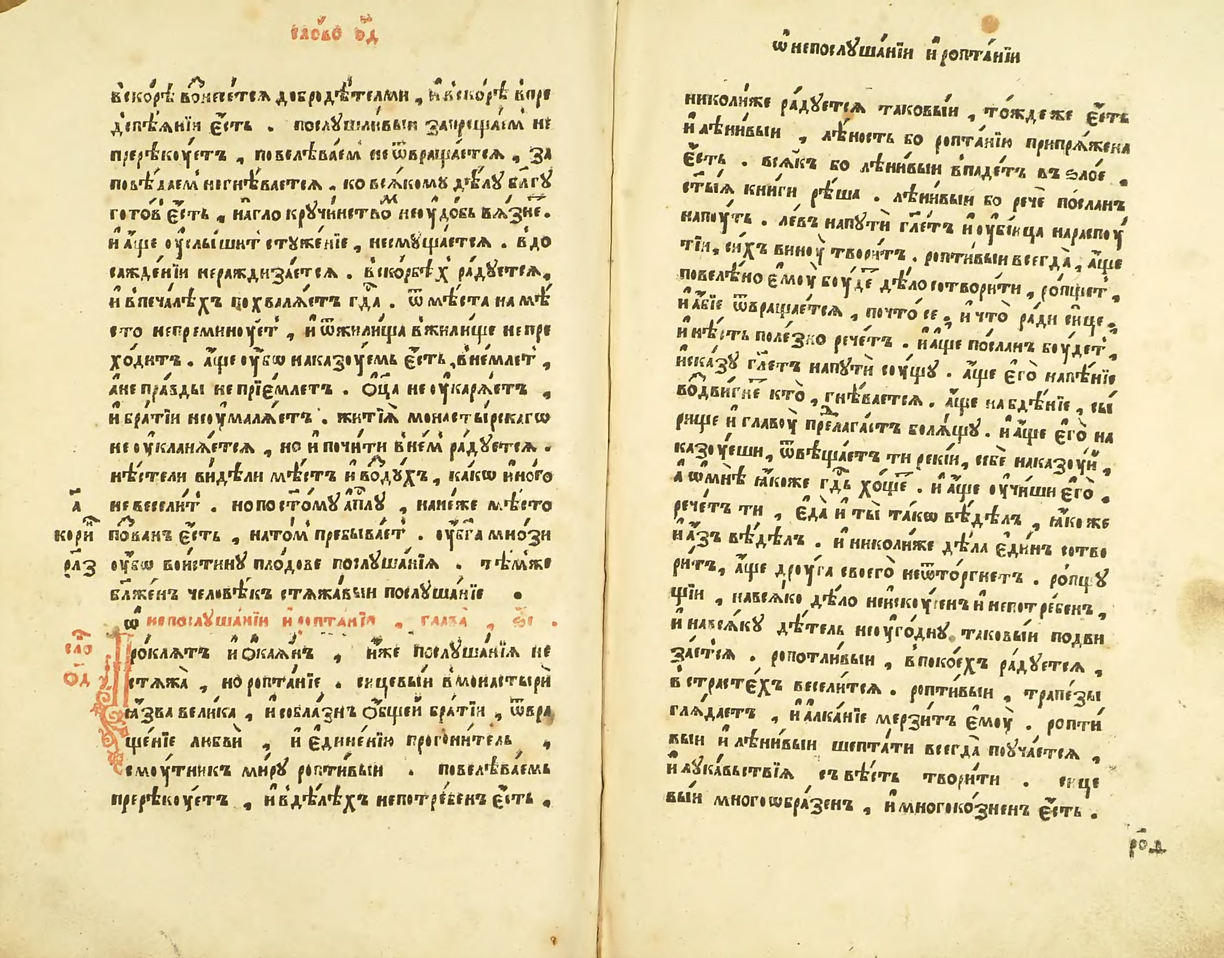 сло́во о҃д
вско́рѣ во́знесе́тся добродѣ́телми , и҆ вско́рѣ впре
дспѣ́янїи є҆́сть . послушли́выи запреща́ем не
пререкꙋ́етъ , повелѣва́ем не ѿвраща́ется , за
повѣ́даем негнѣ́вается . ко вся́комꙋ дѣ́лꙋ бл҃гꙋ
гото́в є҆́сть , на́гло крꙋчи́нством неꙋ҆до́бь вя́зне .
и҆ а҆́ще оу҆слы́шит стꙋже́нїе , несмꙋща́ется . вдо
сажде́нїи нераждиза́ется . вско́рбѣх ра́дꙋется ,
и҆ впеча́лѣхъ похваля́етъ гдⷭ҇а . ѿ мѣ́ста на мѣ́
сто непреминꙋ́ет , и҆ ѿжили́ща вжили́ще непре
хо́дитъ . а҆́ще оу҆́бѡ наказꙋ́емь є҆́сть , вне́млет ,
а҆не пра́зды непрїе́млетъ . Оц҃а не оу҆каря́етъ ,
и҆ бра́тїи неꙋ҆маля́етъ . житїѧ̀ монасты́рскагѡ
не оу҆кланя́ется , но и҆ почи́ти вне́м ра́дꙋется .
нѣ́стели ви́дѣли мѣ́стъ и҆ во́здꙋхъ , ка́кѡ и҆но́го
не весели́т . но по ст҃о́мꙋ а҆пⷭ҇лꙋ , нане́же мѣ́сто
а҃
кори́н
ра́з
по́зван є҆́сть , на́том пребыва́ет . оу҆́бѡ мно́зи
оу҆́бѡ вои́стинꙋ плодове послꙋша́нїя . тѣ́мже
бл҃же́нъ человѣ́къ стяжа́выи послꙋша́нїе .
ѡ҆ непослꙋша́нїи и҆ ропта́нїи , глава̀ , о҃е .
сло́
о҃д
Про́клятъ и҆ Ока́янъ , и҆́же послꙋша́нїя не
стяжа̀ , но ропта́нїе . сицевы́и вмонастырѝ
я҆́зва вели́ка , и҆ собла́знъ О҆́бщеи бра́тїи , ѿвра
ще́нїе любвѝ , и҆ є҆дине́нїю прогони́тель ,
смꙋ́тникъ ми́рꙋ ропти́выи . повелѣва́емь
пререкꙋ́етъ , и҆ вдѣ́лѣхъ непотре́бенъ є҆́сть .
ѡ҆ непослꙋша́нїи и҆ ропта́нїи
николи́же ра́дꙋется таковы́и , то́ждеже є҆́сть
и҆ лѣни́выи , лѣ́ность бо ропта́нїю припря́жена
є҆́сть . вся́къ бо лѣни́выи впаде́тъ въ ѕло́е ,
ст҃ы́я кни́ги рѣ́ша . лѣни́выи бо речѐ по́сланъ
напꙋ́ть . ле́въ напꙋтѝ гл҃етъ и҆ оу҆бі́ица нараспꙋ́
тїи , си́хъ винꙋ̀ твори́т . ропти́выи всегда̀ , а҆́ще
повеле́но є҆мꙋ̀ бꙋ́де дѣ́ло сотвори́ти , ро́пщет ,
и҆ а҆́бїе ѿвраща́ется , почто́ се , и҆ что̀ ра́ди си́це ,
и҆ нѣ́сть поле́зно рече́т . и҆ а҆́ще по́слан бꙋ́дет ,
и҆ска́зꙋ гл҃етъ напꙋтѝ сꙋ́щꙋ . а҆́ще є҆го̀ напѣ́нїе
воздви́гнет кто̀ , гнѣ́вается . а҆́ще на бдѣ́нїе , сы́
рище и҆ главꙋ̀ предлага́етъ боля́щꙋ . и҆ а҆́ще є҆го̀ на
казꙋ́еши , ѿвѣща́етъ ти рекі́и , себѐ наказꙋ́и ,
а҆ ѡ҆мнѣ̀ я҆́коже гдⷭ҇ь хо́щет . и҆ а҆́ще оу҆чи́ши є҆го̀ ,
рече́тъ ти , є҆да̀ и҆ ты̀ та́кѡ вѣ́дѣлъ , я҆́ко же
и҆ а҆́зъ вѣ́дѣлъ . и҆ николи́же дѣ́ла є҆ди́нъ сотво
ри́тъ , а҆́ще дрꙋ́га своего̀ не ѿто́ргнетъ . ро́пщꙋ
щїи , нався́ко дѣ́ло неискꙋ́сенъ и҆ непотре́бенъ ,
и҆ нався́кꙋ дѣ́тель неꙋго́днꙋ таковы́и подви
за́ется . ропотли́выи , впоко́ехъ ра́дꙋется ,
встра́стѣхъ весели́тся . ропти́выи , трапе́зы
гляда́етъ , и҆ а҆лка́нїе мерзи́тъ є҆мꙋ̀ . ропти́
выи и҆ лѣни́выи шепта́ти всегда̀ поꙋча́ется ,
и҆ лꙋка́вьствїя съвѣ́сть твори́ти . сице
вы́и многоѡбра́зенъ , и҆ многоко́зненъ є҆́сть .
ро́д